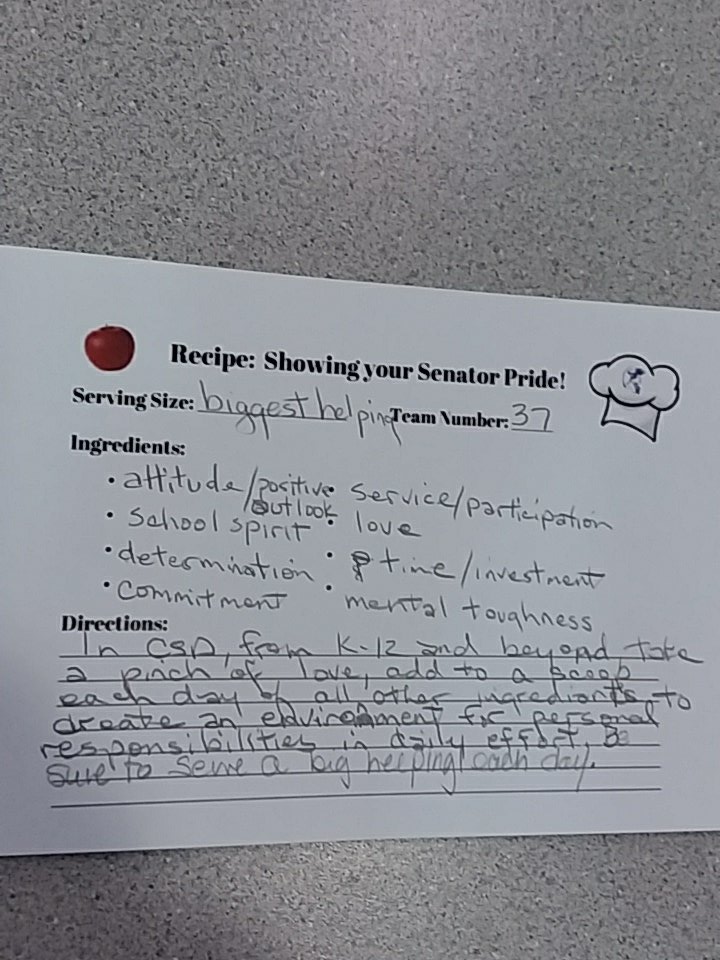 Recipe: Showing your Senator Pride!
Serving Size: biggest helping Team Number: 37
Ingredients:
• attitude/positive outlook • service/participation
• school spirit • love
• determination • time/investment
• commitment • mental toughness
Directions:
In CSD, from K-12 and beyond take
a pinch of love, add to a scoop
each day of all other ingredients, to
create an environment for personal
responsibilities in daily effort. Be
sure to serve a big helping each day.